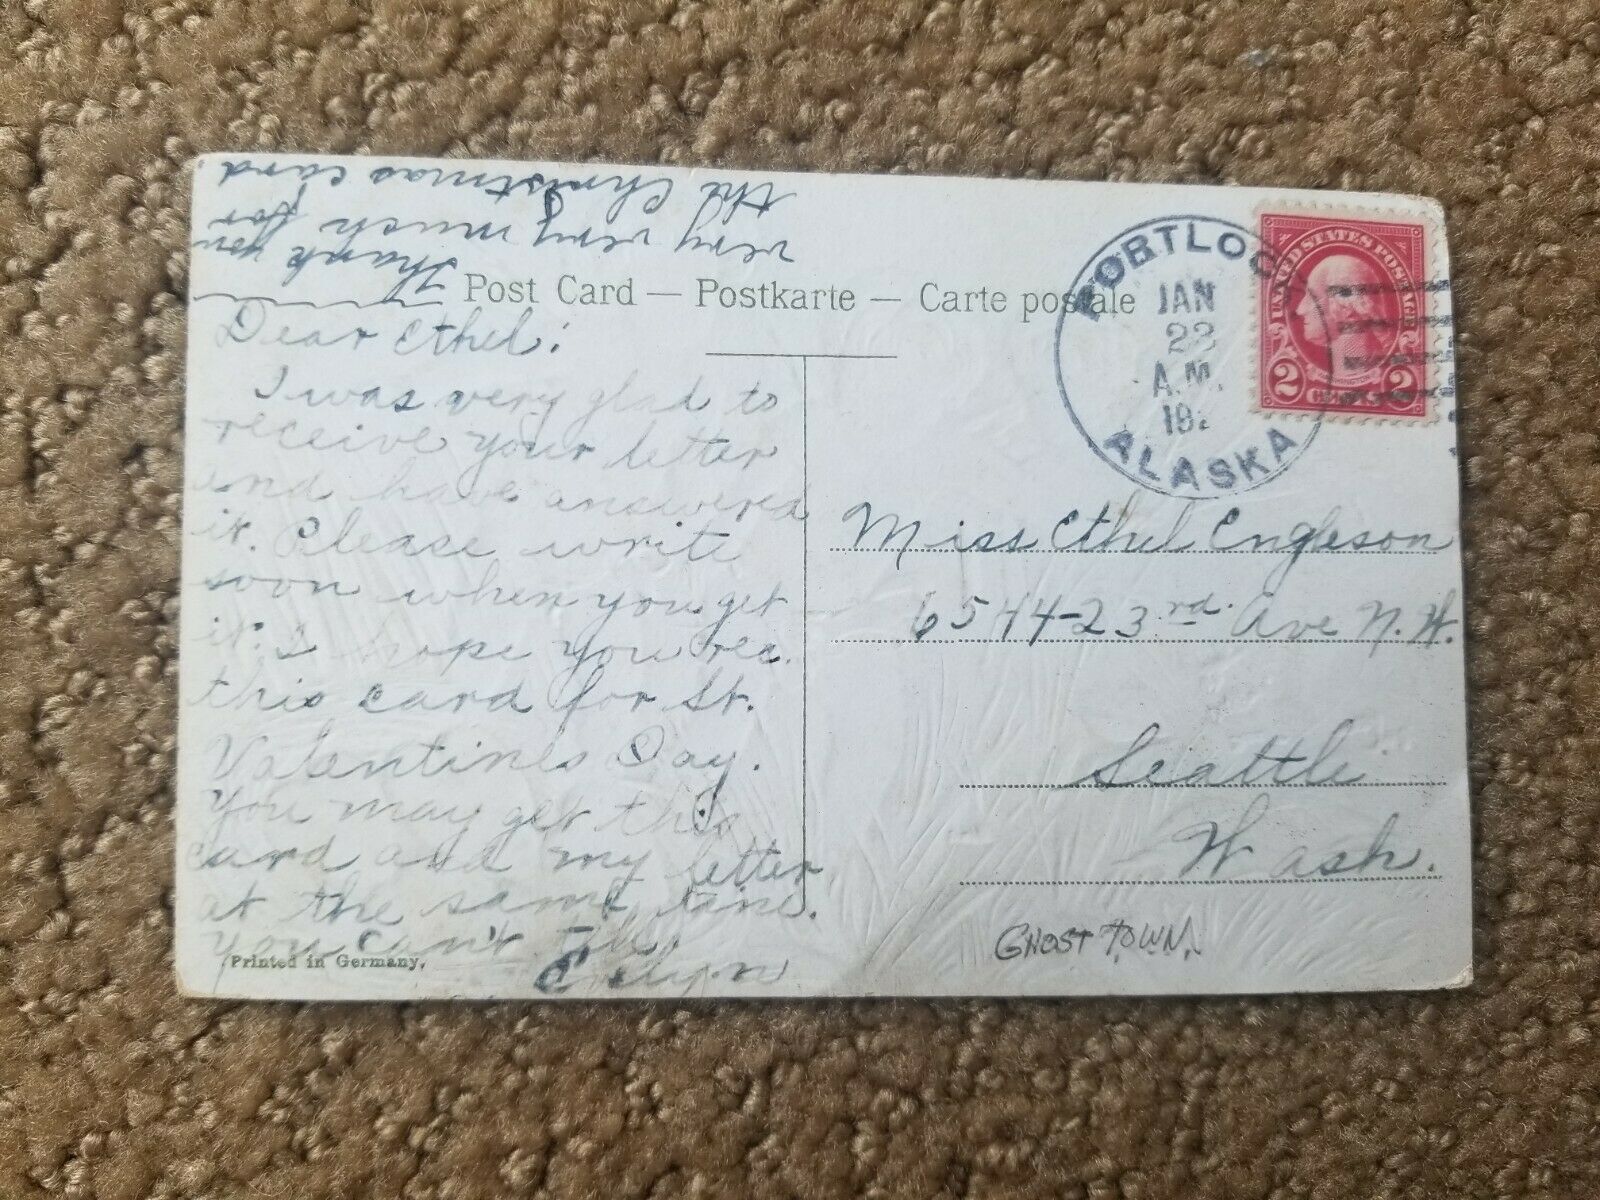 Thank you
very very much for
the Christmas card
Post Card — Postkarte — Carte postale
PORTLOC
JAN
22
A.M.
192
ALASKA
UNITED STATES POSTAGE
2 CENTS 2
Dear Ethel:
I was very glad to
receive your letter
and have answered
it. Please write
soon when you get
it. I hope you rec.
this card for St.
Valentines Day.
You may get this
card and my letter
at the same time.
You can't tell.
Miss Ethel Engleson
6544-23rd. Ave N.W.
Seattle
Wash.
GHOST TOWN.
Printed in Germany.